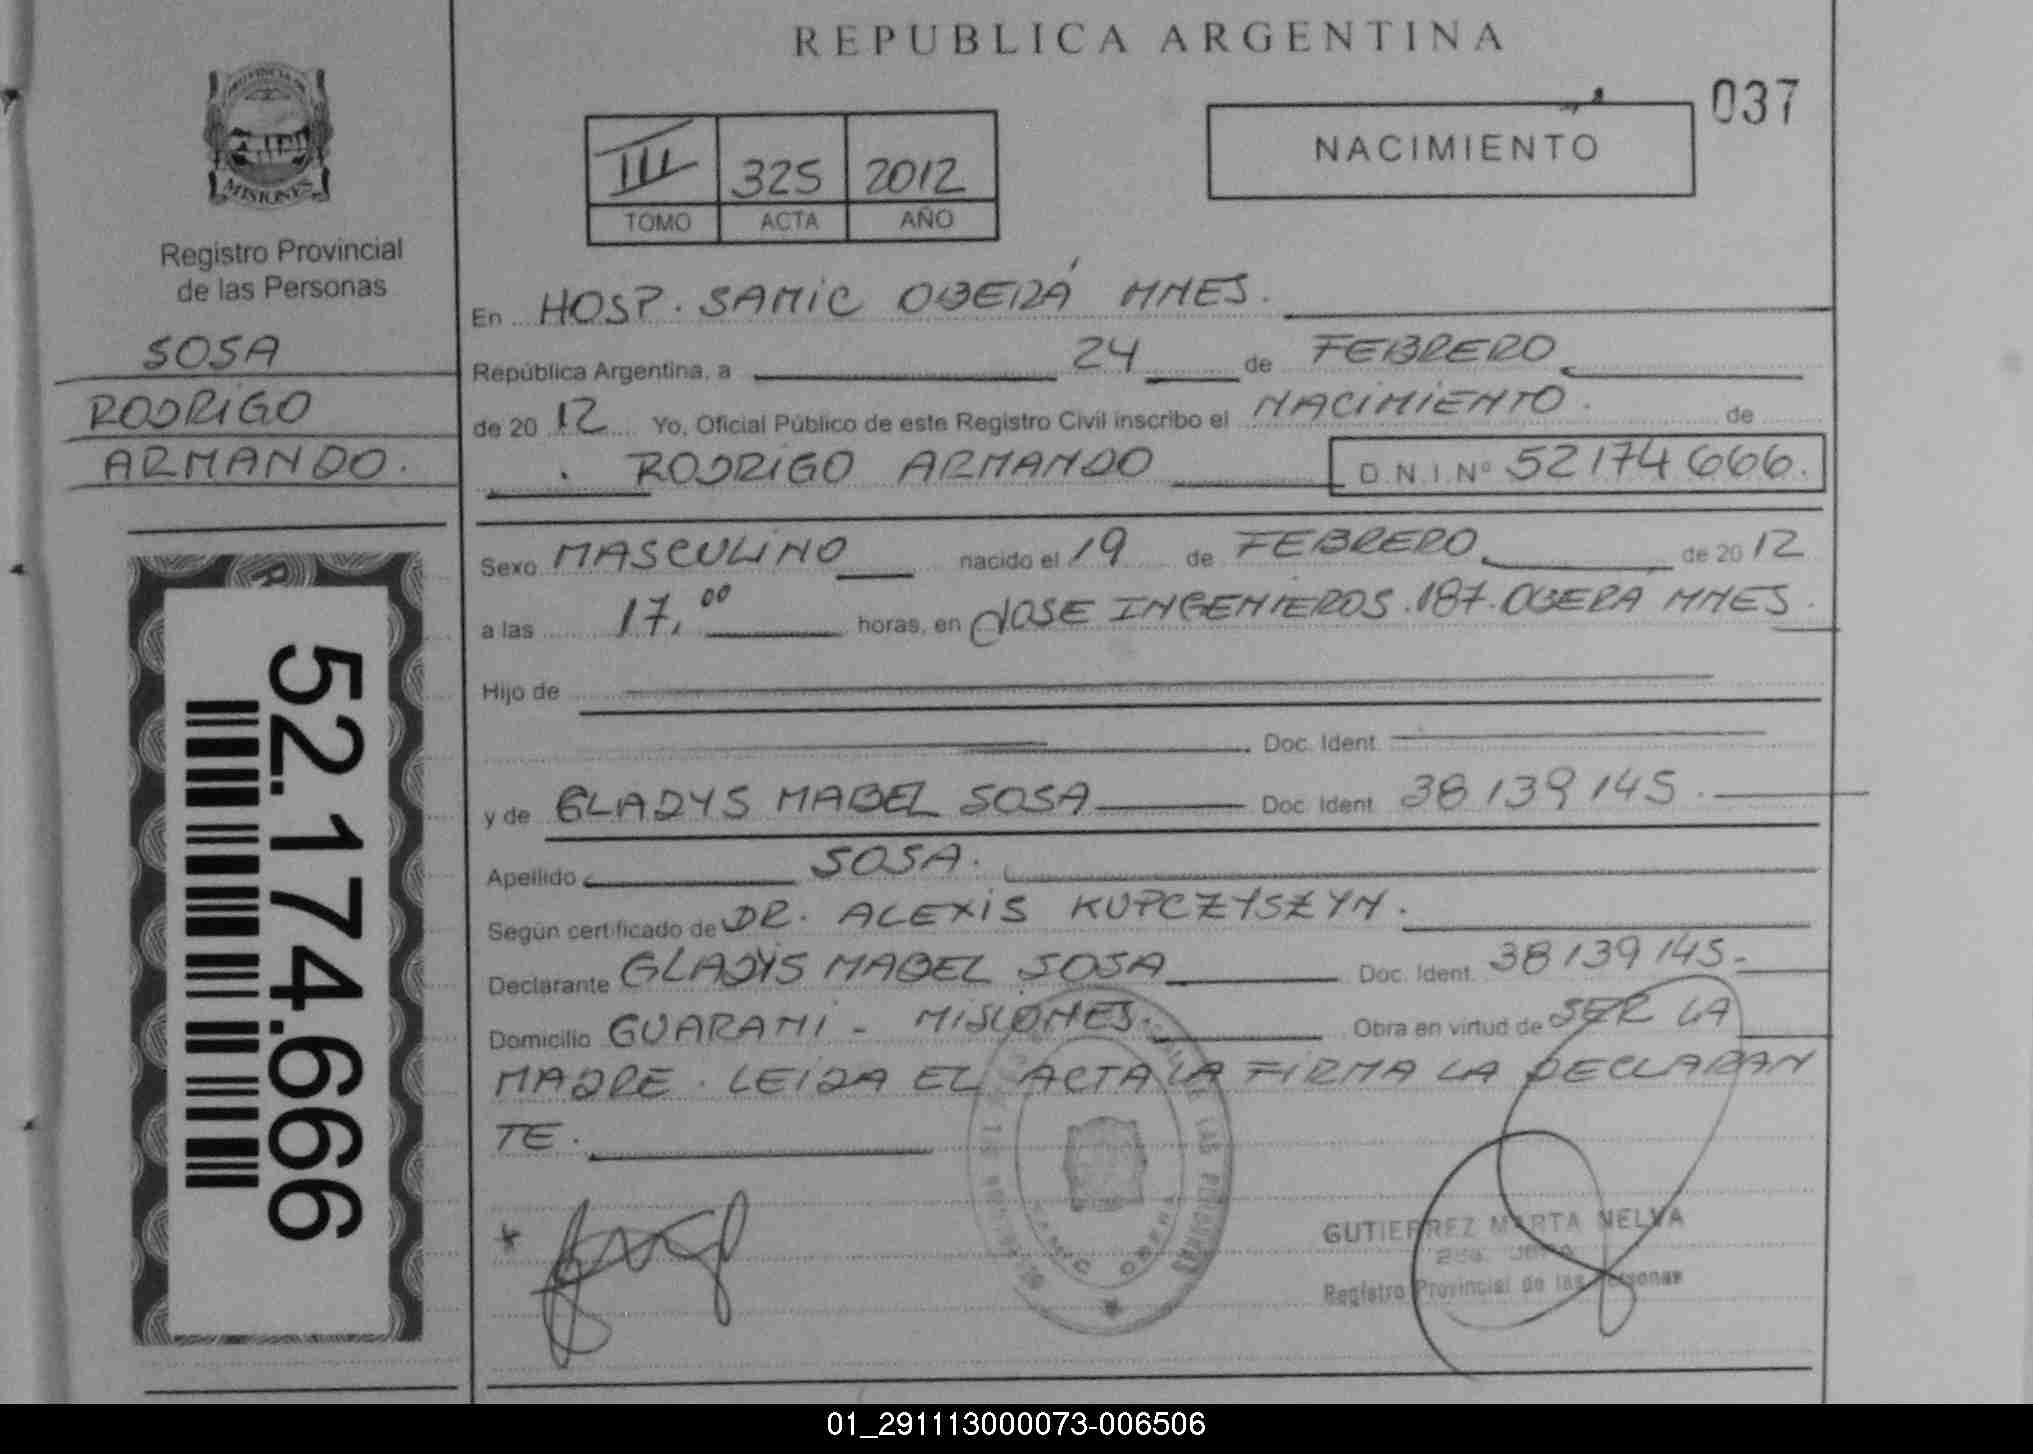 REPUBLICA ARGENTINA
037
NACIMIENTO
III 325 2012
TOMO ACTA AÑO
PROVINCIA DE
MISIONES
Registro Provincial
de las Personas
SOSA
RODRIGO
ARMANDO.
52.174.666
En HOSP. SAMIC OBERÁ MNES.
República Argentina, a 24 de FEBRERO
de 2012 Yo, Oficial Público de este Registro Civil inscribo el NACIMIENTO. de
RODRIGO ARMANDO D.N.I.Nº 52174666.
Sexo MASCULINO nacido el 19 de FEBRERO de 2012
a las 17,00 horas, en JOSE INGENIEROS.187.OBERÁ MNES.
Hijo de
Doc. Ident.
y de GLADYS MABEL SOSA Doc. Ident. 38139145.
Apellido SOSA.
Según certificado de DR. ALEXIS KUPCZYSZYN.
Declarante GLADYS MABEL SOSA Doc. Ident. 38139145.-
Domicilio GUARANI - MISIONES. Obra en virtud de SER LA
MADRE. LEIDA EL ACTA LA FIRMA LA DECLARAN
TE.
GUTIERREZ MARTA NELVA
Registro Provincial de las Personas
01_291113000073-006506